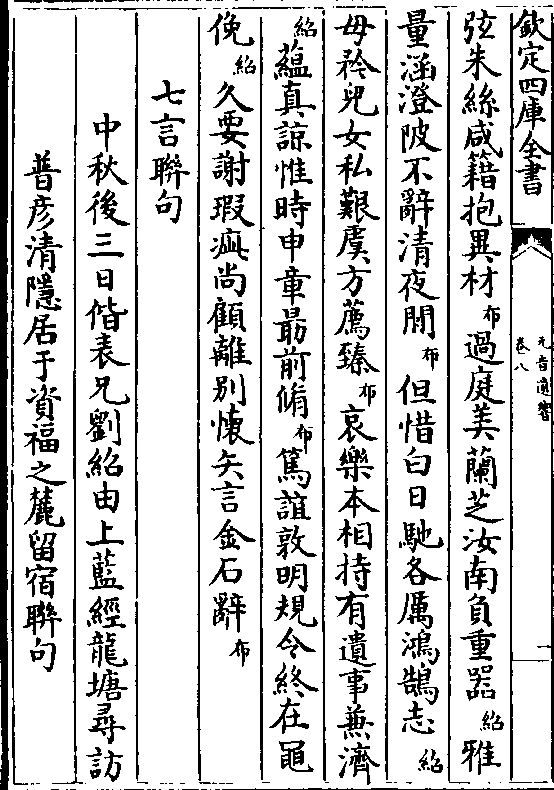 欽定四庫全書
元音遺響
卷八
一
弦朱絲咸籍抱異材布過庭美蘭芝汝南負重器紹雅
量涵澄陂不辭清夜闌布但惜白日馳各厲鴻鵠志紹
毋矜兒女私艱虞方薦臻布哀樂本相持有遺事兼濟
紹蘊真諒惟時申章最前脩布篤誼敦明規令終在黽
俛紹久要謝瑕疵尚顧離別懷矢言金石辭布
七言聯句
中秋後三日偕表兄劉紹由上藍經龍塘尋訪
普彥清隱居于資福之麓留宿聯句